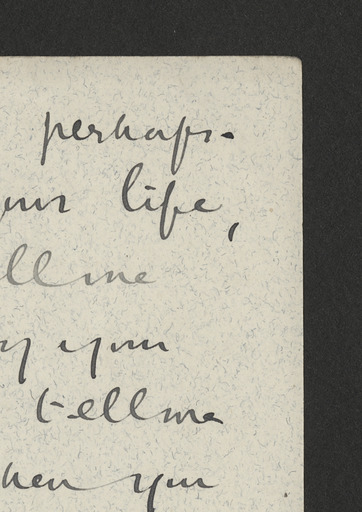 perhaps.
your life,
tell me
by your
tell me
when you